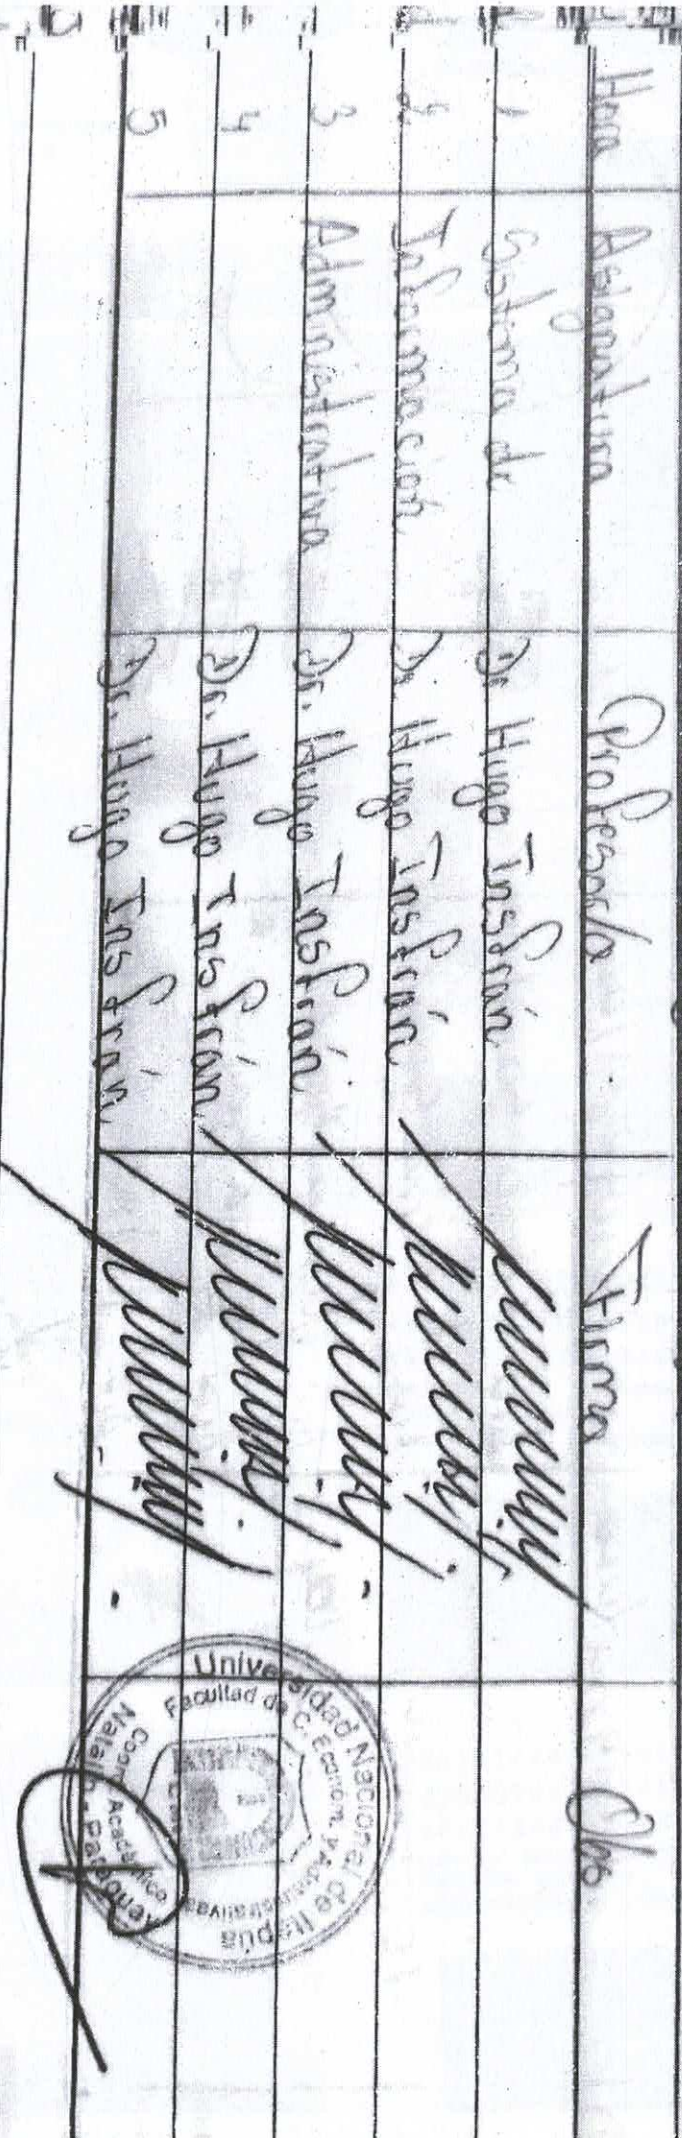 Hora Asignatura Profesor/a Firma Obs.
1 Sistema de Dr. Hugo Insfrán
2 Información Dr. Hugo Insfrán
3 Administrativa Dr. Hugo Insfrán
4 Dr. Hugo Insfrán
5 Dr. Hugo Insfrán
Universidad Nacional de Itapúa
Facultad de C. Económ. y Administrativas
Coord. Académico
Natalio - Paraguay